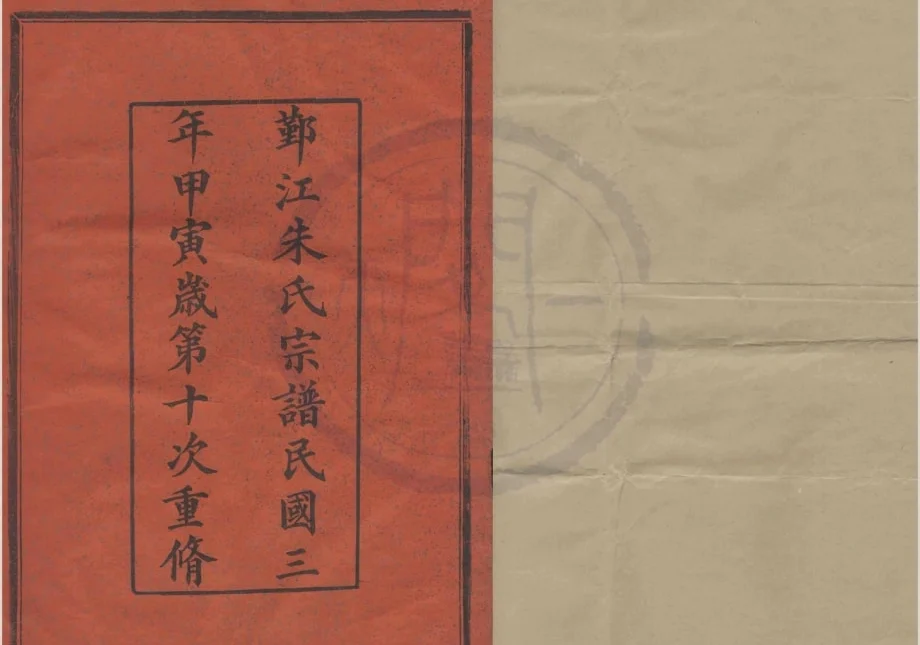 鄞江朱氏宗譜民國三
年甲寅歳第十次重脩